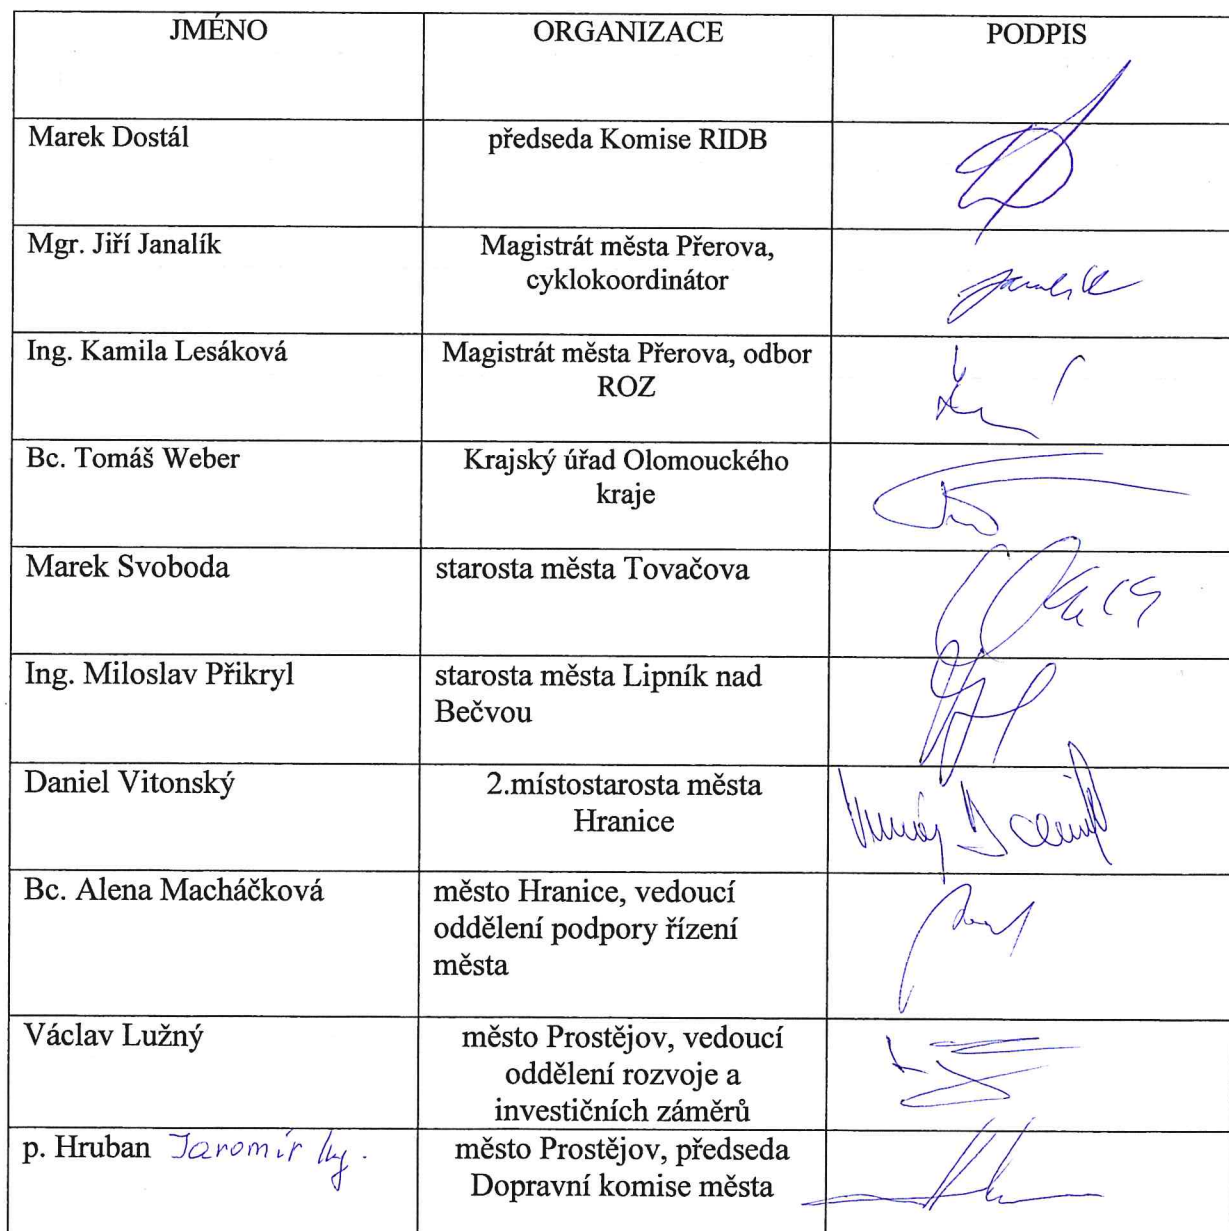 JMÉNO ORGANIZACE PODPIS
Marek Dostál předseda Komise RIDB
Mgr. Jiří Janalík Magistrát města Přerova,
cyklokoordinátor
Janalík
Ing. Kamila Lesáková Magistrát města Přerova, odbor
ROZ
Bc. Tomáš Weber Krajský úřad Olomouckého
kraje
Marek Svoboda starosta města Tovačova
Ing. Miloslav Přikryl starosta města Lipník nad
Bečvou
Daniel Vitonský 2.místostarosta města
Hranice
Bc. Alena Macháčková město Hranice, vedoucí
oddělení podpory řízení
města
Václav Lužný město Prostějov, vedoucí
oddělení rozvoje a
investičních záměrů
p. Hruban Jaromír Ing. město Prostějov, předseda
Dopravní komise města